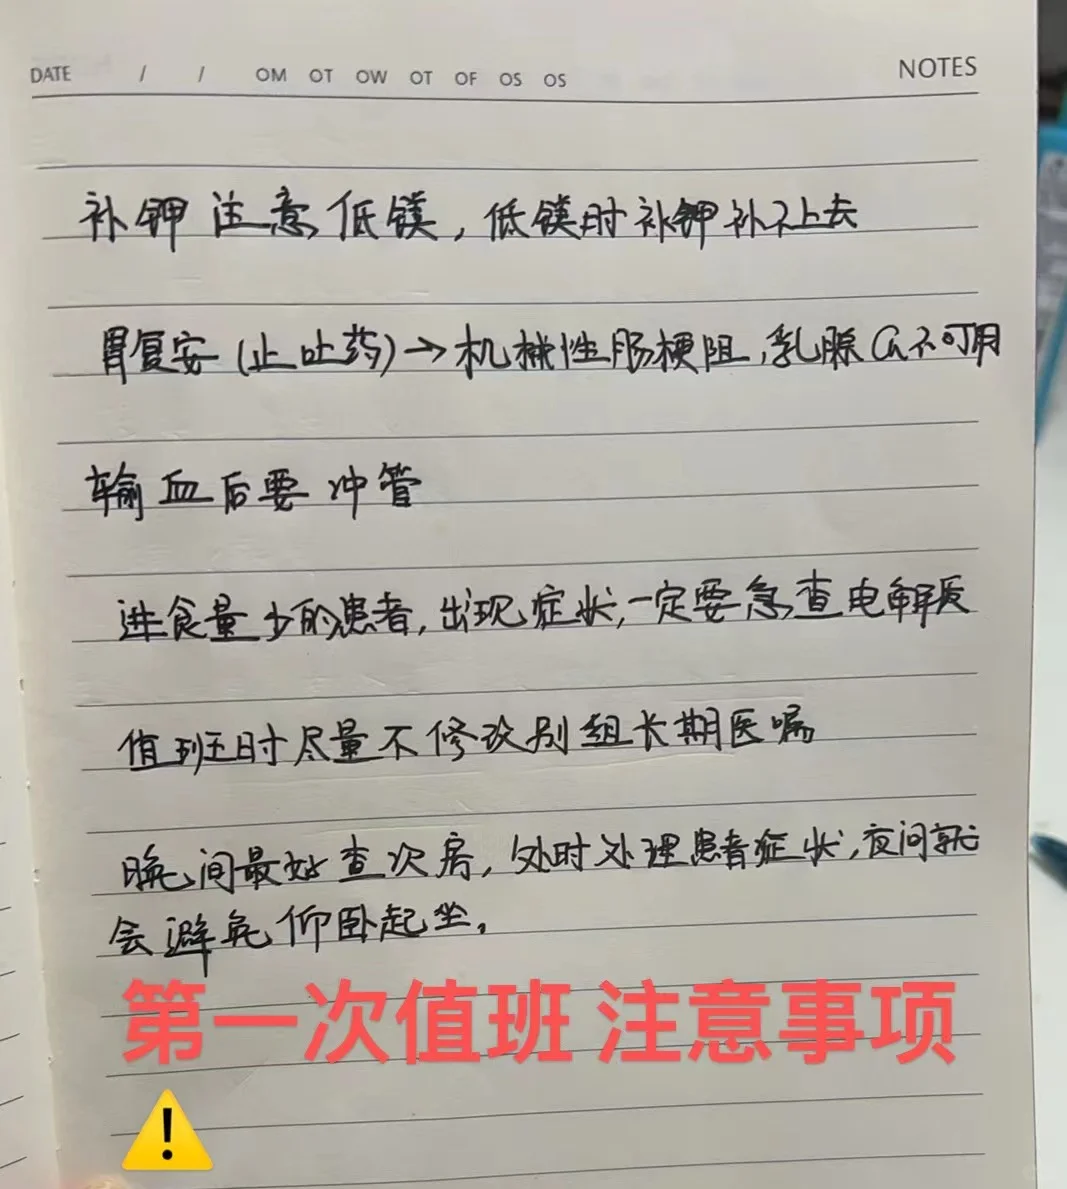 DATE / / OM OT OW OT OF OS OS NOTES
补钾注意低镁，低镁时补钾补不上去
胃复安(止吐药)→机械性肠梗阻，乳腺Ca不可用
输血后要冲管
进食量少的患者，出现症状，一定要急查电解质
值班时尽量不修改别组长期医嘱
晚间最好查次房，及时处理患者症状，夜间就
会避免仰卧起坐。
第一次值班 注意事项